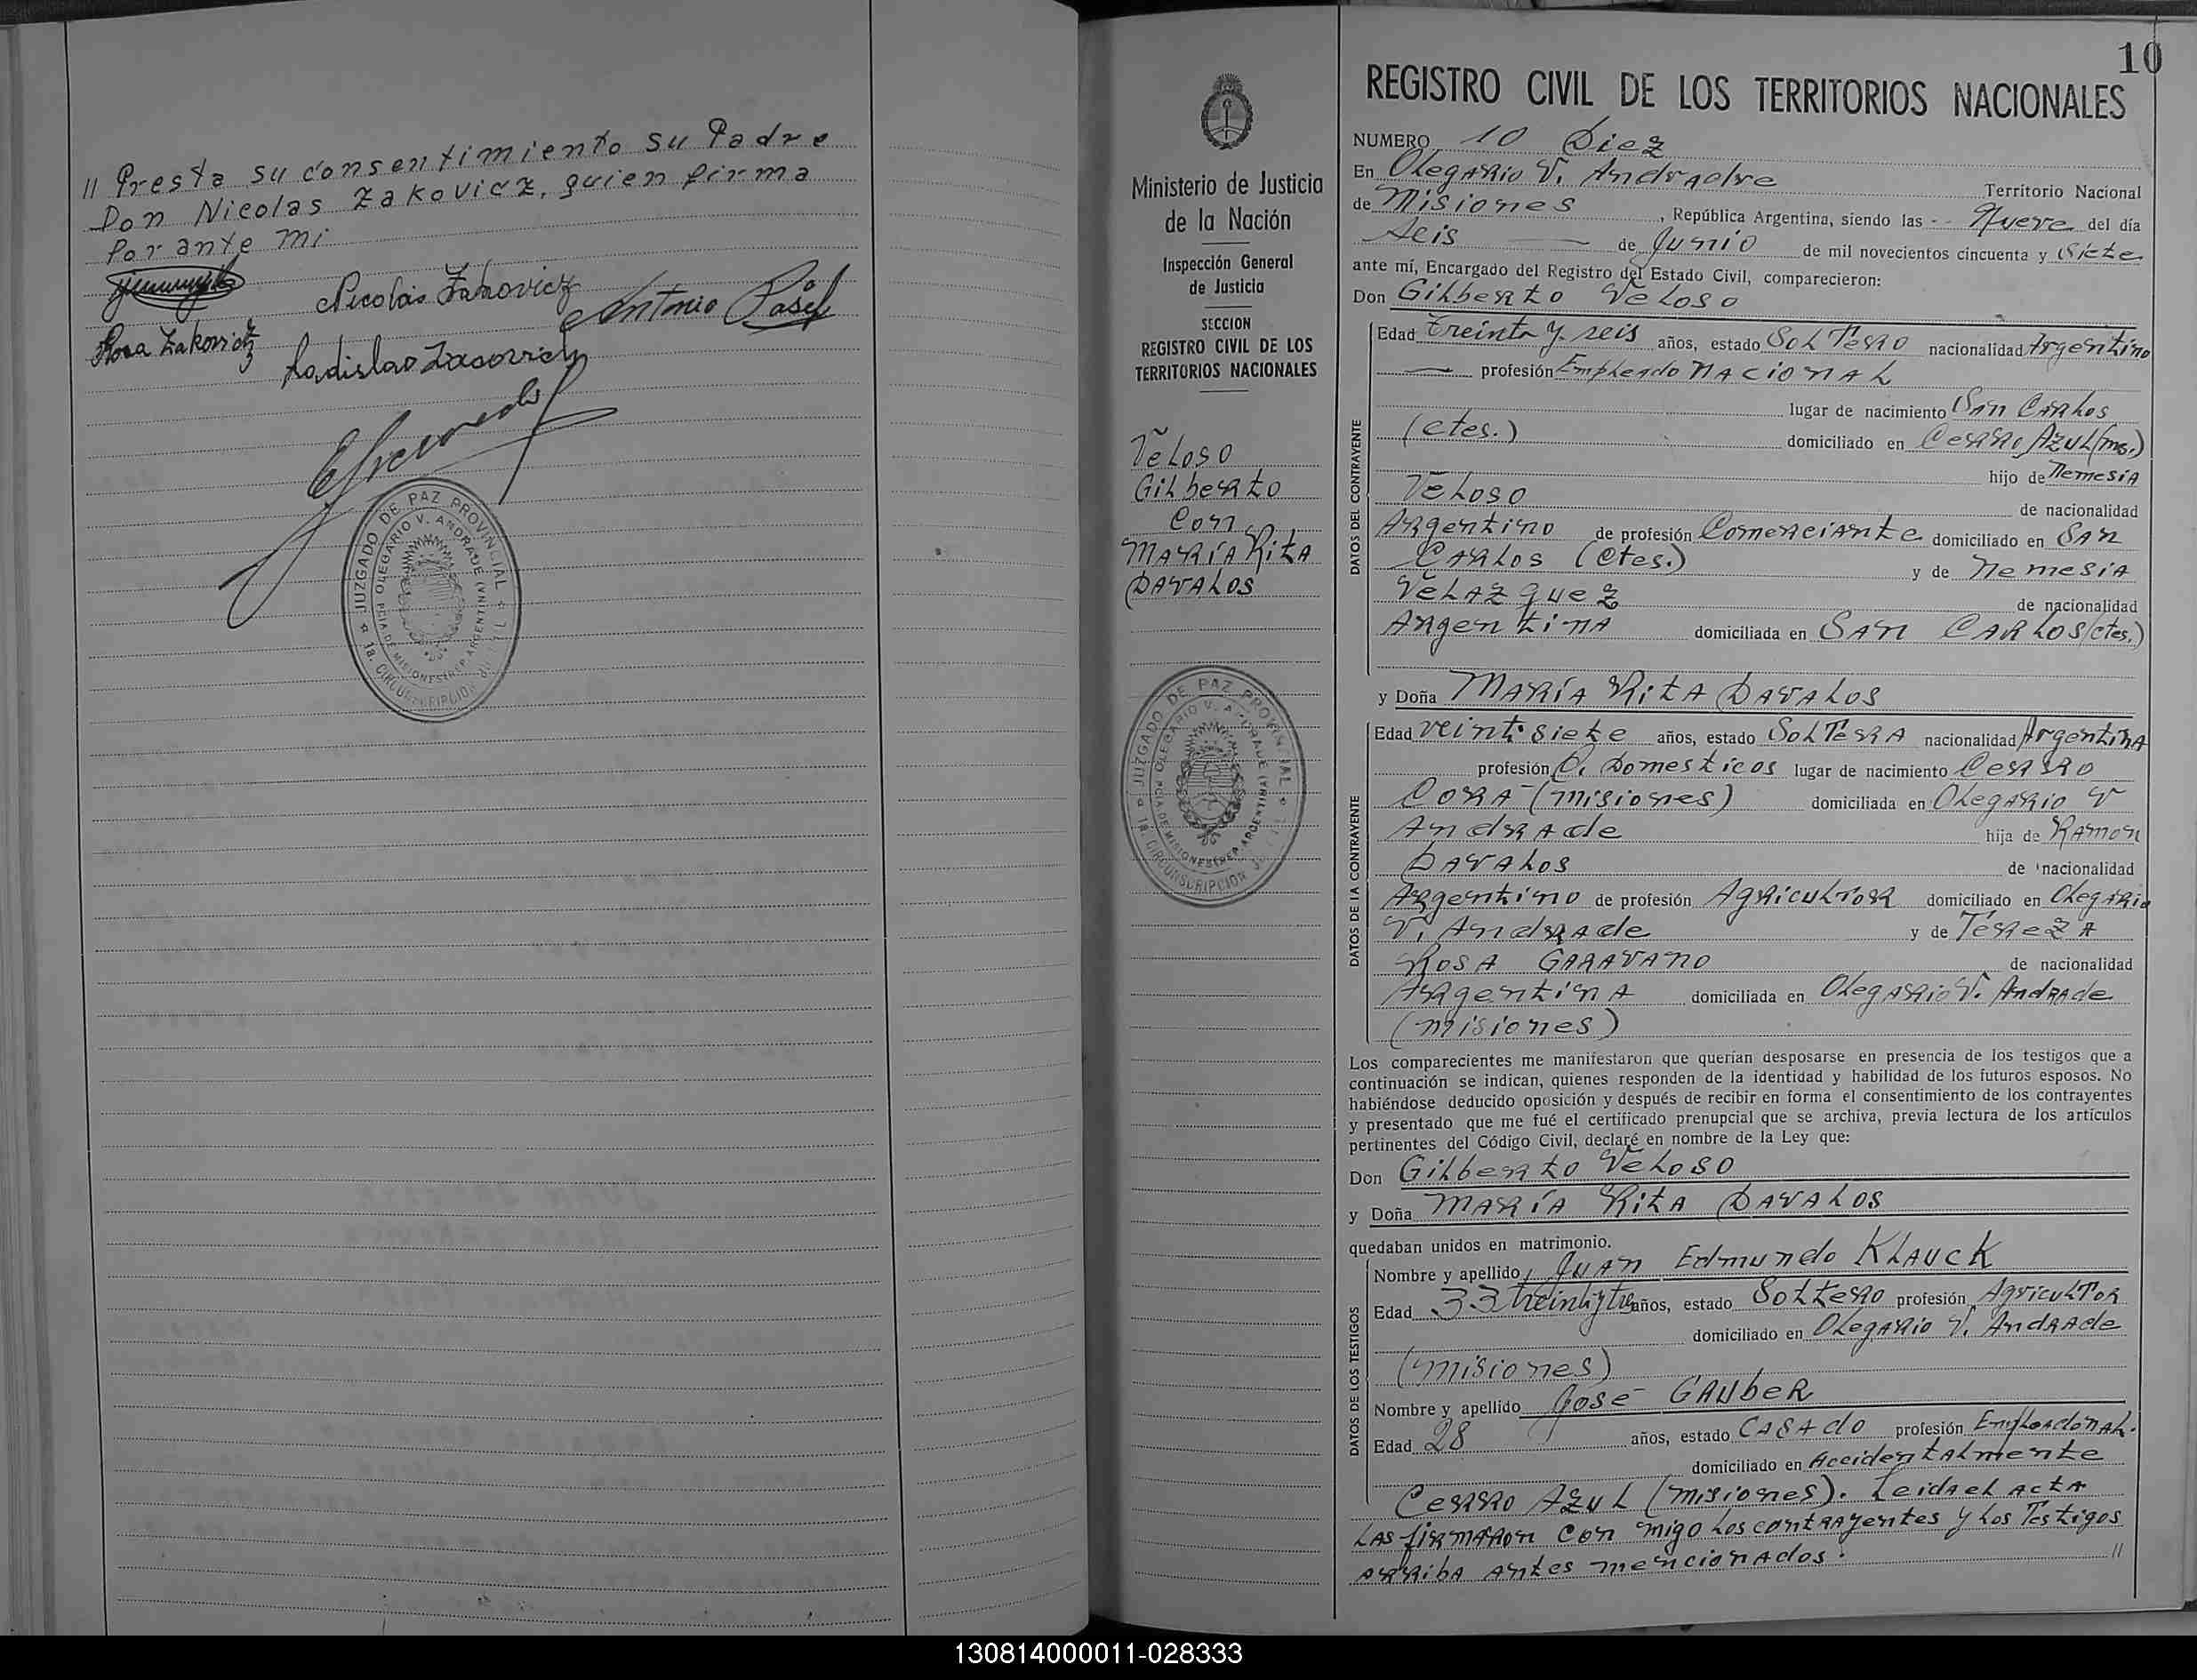 // Presta su consentimiento su Padre
Don Nicolas Zakovicz, quien firma
Por ante mi
Nicolás Zakovicz
Antonio
Rosa Zakovicz
Ladislao
JUZGADO DE PAZ PROVINCIAL
OLEGARIO V. ANDRADE
PCIA DE MISIONES (REP. ARGENTINA)
1a. CIRCUNSCRIPCION
Ministerio de Justicia
de la Nación
Inspección General
de Justicia
SECCION
REGISTRO CIVIL DE LOS
TERRITORIOS NACIONALES
Veloso
Gilberto
Con
María Rita
Davalos
JUZGADO DE PAZ PROVINCIAL
OLEGARIO V. ANDRADE
PCIA DE MISIONES (REP. ARGENTINA)
1a. CIRCUNSCRIPCION
10
REGISTRO CIVIL DE LOS TERRITORIOS NACIONALES
NUMERO 10 Diez
En Olegario V. Andradre Territorio Nacional
de Misiones, República Argentina, siendo las -- Nueve del día
Seis — de Junio de mil novecientos cincuenta y Siete
ante mí, Encargado del Registro del Estado Civil, comparecieron:
Don Gilberto Veloso
DATOS DEL CONTRAYENTE
Edad treinta y seis años, estado Soltero nacionalidad Argentino
— profesión Empleado Nacional
lugar de nacimiento San Carlos
(ctes.) domiciliado en Cerro Azul (ms.)
hijo de Nemesia
Veloso de nacionalidad
Argentino de profesión Comerciante domiciliado en San
Carlos (Ctes.) y de Nemesia
Velazquez de nacionalidad
Argentina domiciliada en San Carlos (ctes.)
y Doña María Rita Davalos
DATOS DE LA CONTRAYENTE
Edad veintisiete años, estado Soltera nacionalidad Argentina
profesión Q. Domesticos lugar de nacimiento Cerro
Corá (Misiones) domiciliada en Olegario V
Andrade hija de Ramon
Davalos de nacionalidad
Argentino de profesión Agricultor domiciliado en Olegario
V. Andrade y de Tereza
Rosa Garavano de nacionalidad
Argentina domiciliada en Olegario V. Andrade
(Misiones)
Los comparecientes me manifestaron que querían desposarse en presencia de los testigos que a
continuación se indican, quienes responden de la identidad y habilidad de los futuros esposos. No
habiéndose deducido oposición y después de recibir en forma el consentimiento de los contrayentes
y presentado que me fué el certificado prenupcial que se archiva, previa lectura de los artículos
pertinentes del Código Civil, declaré en nombre de la Ley que:
Don Gilberto Veloso
y Doña María Rita Davalos
quedaban unidos en matrimonio.
DATOS DE LOS TESTIGOS
Nombre y apellido Juan Edmundo Klauck
Edad 33 treintitres años, estado Soltero profesión Agricultor
domiciliado en Olegario V. Andrade
(Misiones)
Nombre y apellido José Gauber
Edad 28 años, estado Casado profesión Empleado Nal.
domiciliado en Accidentalmente
Cerro Azul (Misiones). Leida el acta
las firmaron con migo los contrayentes y los Testigos
arriba antes mencionados. //
130814000011-028333